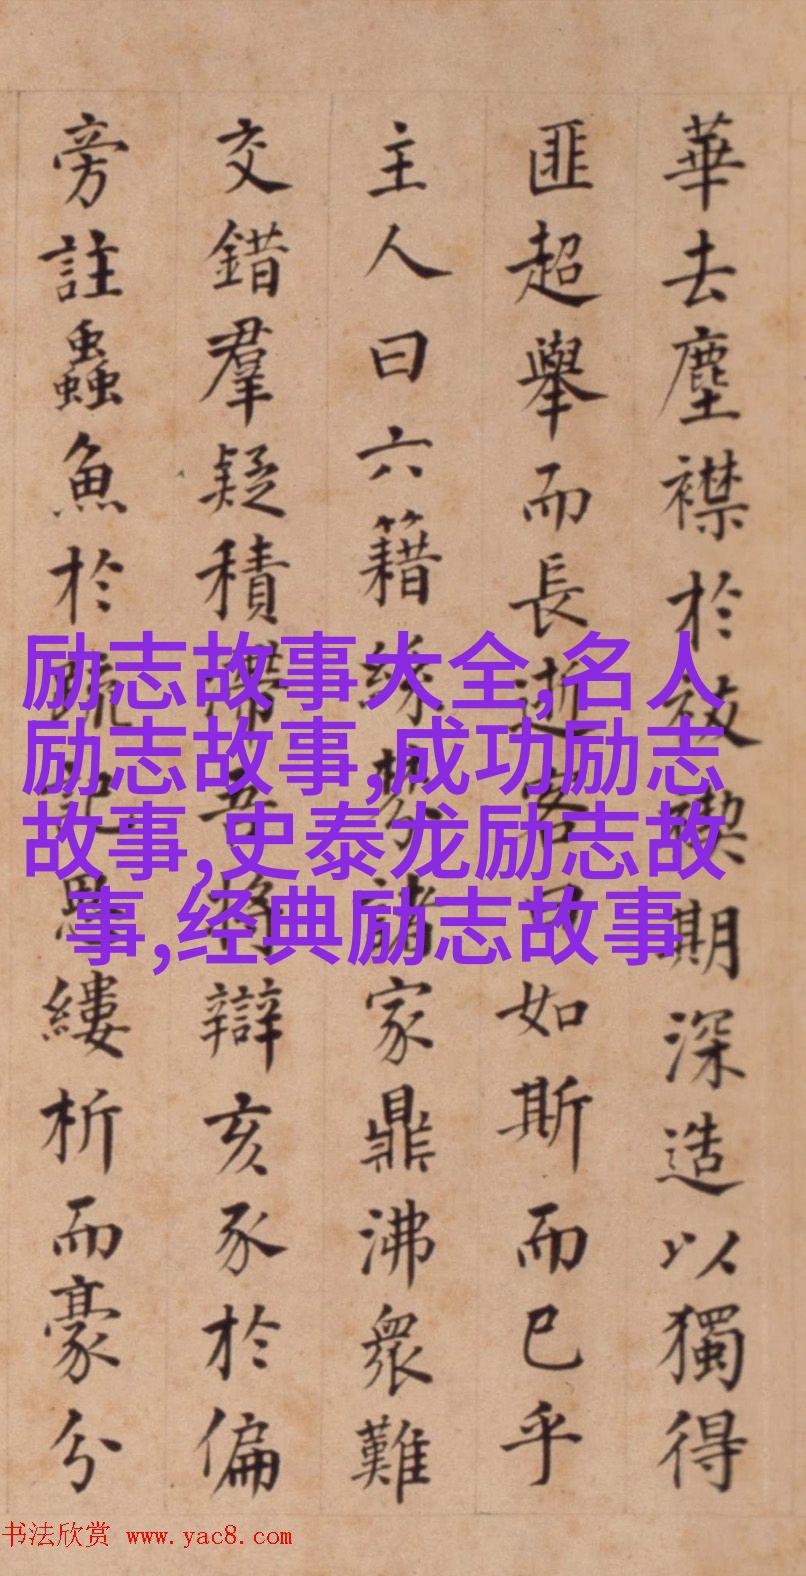 華去塵襟於祓禊期深造以獨得
匪超舉而長逝客曰如斯而已乎
主人曰六籍絲棼諸家鼎沸衆難
交錯羣疑積滯吾將辯亥豕於偏
旁註蟲魚於疏記思縷析而豪分
励志故事大全,名人
励志故事,成功励志
故事,史泰龙励志故
事,经典励志故事
书法欣赏 www.yac8.com